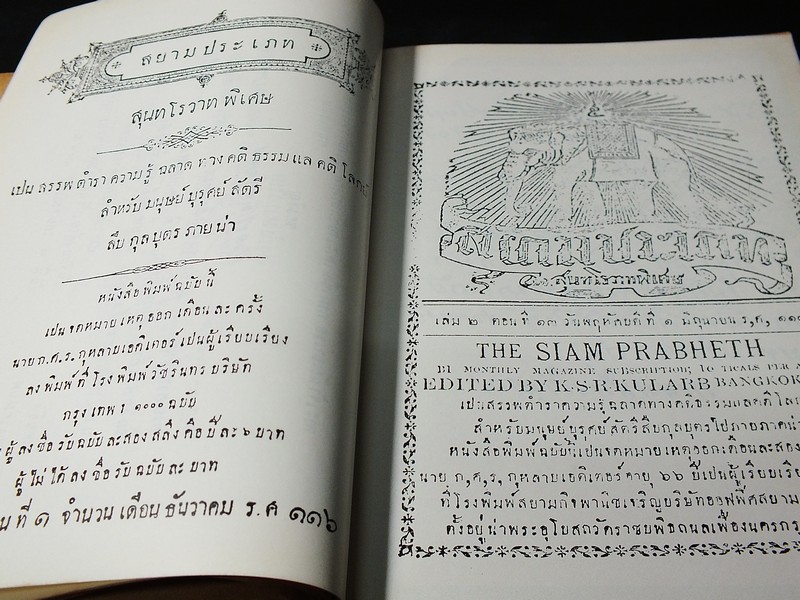 สยามประเภท
สุนทโรวาท พิเศษ
เปน สรรพตำรา ความรู้ ฉลาด ทาง คดี ธรรม แล คดี โลกย์
สำหรับ มนุษย์ บุรุศย์ สัตรี
สืบ กุลบุตร ภายน่า
หนังสือพิมพ์ ฉบับ นี้
เปน จดหมาย เหตุ ออก เดือน ละ ครั้ง
นาย ก.ศ.ร. กุหลาบ เอดิเตอร์ เปน ผู้ เรียบเรียง
ลง พิมพ์ ที่ โรง พิมพ์ วัชรินทร บริษัท
กรุง เทพ ฯ ๑๐๐๐ ฉบับ
ผู้ ลง ชื่อ รับ ฉบับ ละ สอง สลึง คือ ปี ละ ๖ บาท
ผู้ ไม่ ได้ ลง ชื่อ รับ ฉบับ ละ บาท
ที่ ๑ จำนวน เดือน ธันวาคม ร.ศ ๑๑๖
สยามประเภท
สุนทโรวาทพิเศษ
เล่ม ๒ ตอน ที่ ๑๓ วันพฤหัศบดี ที่ ๑ มิถุนายน ร,ศ,
THE SIAM PRABHETH
BI MONTHLY MAGAZINE SUBSCRIPTION; 10 TICALS PER
EDITED BY K.S.R. KULARB BANGKOK
เปนสรรพตำราความรู้ฉลาดทางคดีธรรมแลคดีโล
สำหรับมนุษย์บุรุศย์สัตรีสืบกุลบุตรไปภายภาคน่า
หนังสือพิมพ์ฉบับนี้เปนจดหมายเหตุออกเดือนละสอง
นาย ก,ศ,ร, กุหลาบเอดิเตอร์อายุ ๖๖ ปีเปนผู้เรียบเรีย
ที่โรงพิมพ์สยามกิจพานิชเจริญบริษัทออฟฟิศสยาม
ตั้งอยู่น่าพระอุโบสถวัดราชบพิธถนลเฟื่องนคร